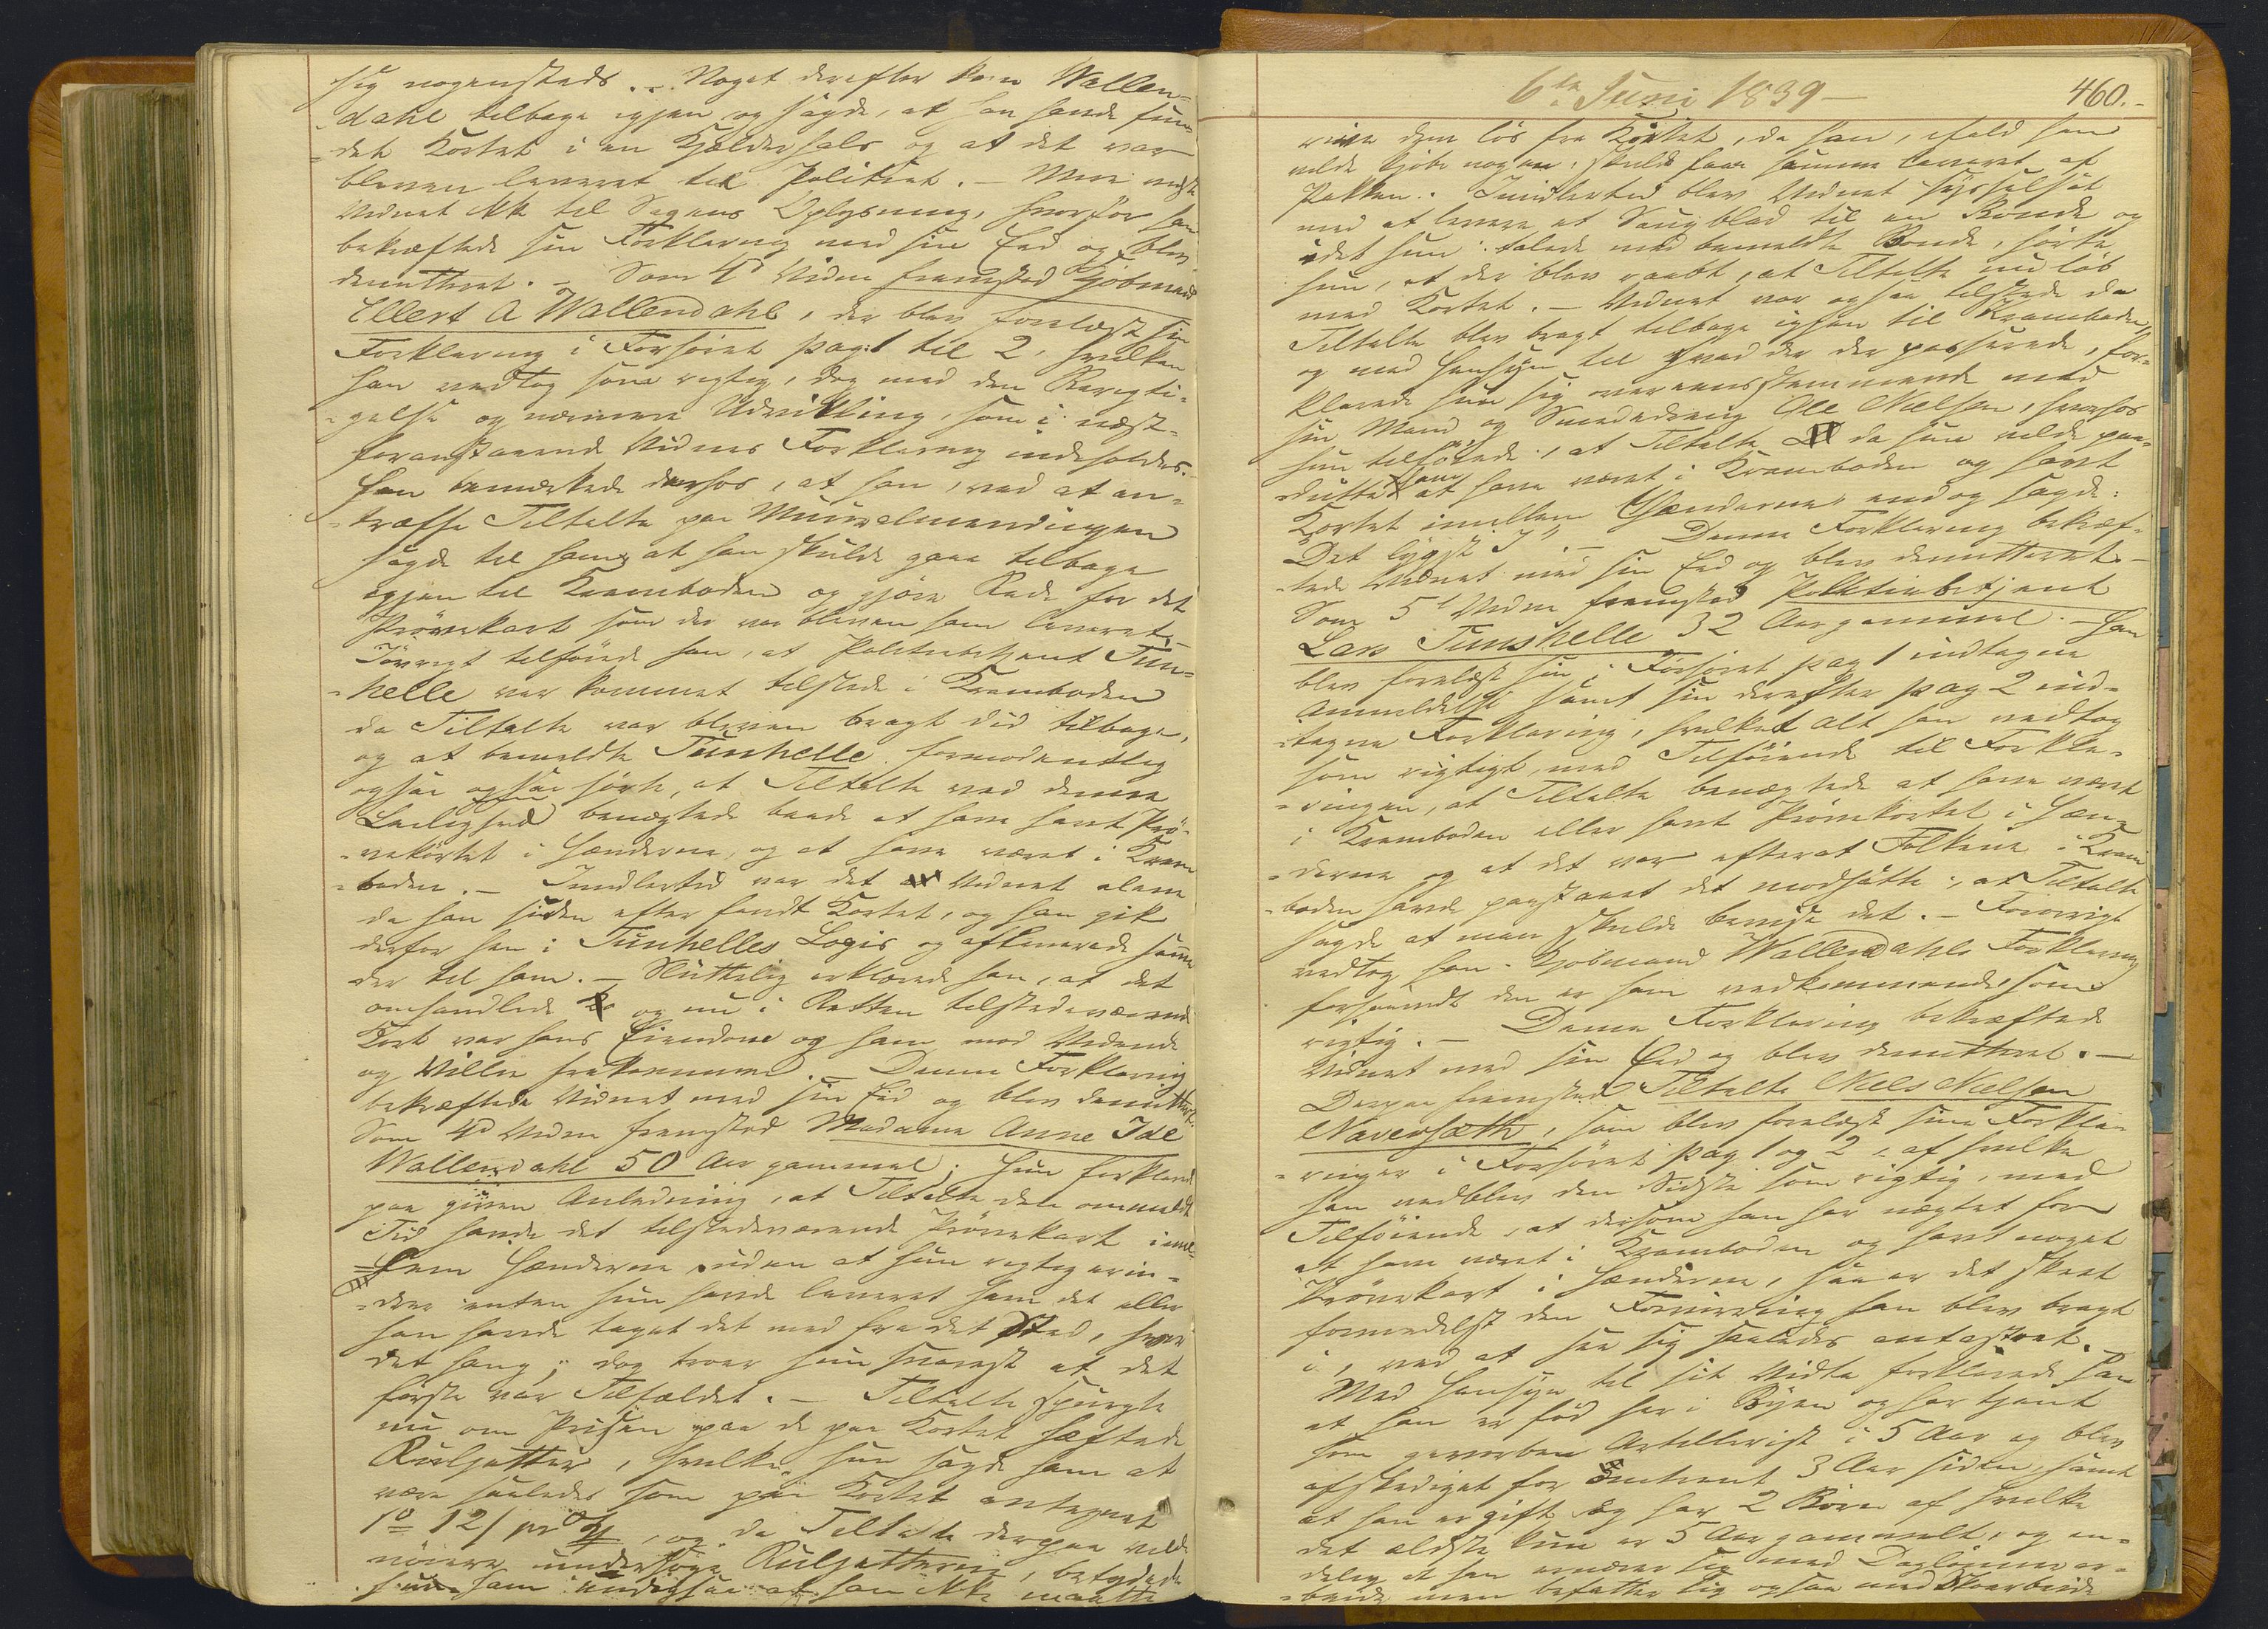 sig nogenstads. Noget derefter kom Wallen-
-dahl tilbage igjen og sagde, at han havde fun-
-det Kortet i en Kjelderhals og at det var
bleven leveret til Politiet. — Mere vidste
Vidnet ikke til Sagens Oplysning, hvorfor han
bekræftede sin Forklaring med sin Eed og blev
demitteret. — Som 3d Vidne fremstod Kjöbmand
Ellert A Wallendahl, der blev forelæst sin
Forklaring i Forhöret pag: 1 til 2, hvilken
han vedtog som rigtig, dog med den Berigti-
-gelse og nærmere Udvikling, som i næst-
foranstaaende Vidnes Forklaring indeholdes.
Han bemærkede derhos, at han, ved at an-
-træffe Tiltalte paa Muuralmendingen
sagde til ham, at han skulde gaae tilbage
igjen til Kramboden og gjöre Rede for det
Prövekort som der var bleven ham leveret. —
Iövrigt tilföiede han, at Politiebetjent Tun-
-helle var kommet tilstede i Kramboden
da Tiltalte var bleven bragt did tilbage,
og at bemeldte Tunhelle formodentlig
ogsaa hörte, at Tiltalte ved denne
Leilighed benægtede baade at have havt Prö-
-vekortet i Hænderne, og at have været i Kram-
-boden. — Imidlertid var det Vidnet alene
da han siden efter fandt Kortet, og han gik
derfor hen i Tunhelles Logis og afleverede samme
der til ham. — Sluttelig erklærede han, at det
omhandlede og nu i Retten tilstedeværende
Kort var hans Eiendom og ham mod Vidende
og Villie frakommen. — Denne Forklaring
bekræftede Vidnet med sin Eed og blev demitteret.
Som 4d Vidne fremstod Madame Anne Ide
Wallendahl 50 Aar gammel; hun forklarede
paa given Anledning, at Tiltalte den ommeldte
Tid havde det tilstedeværende Prövekort imel-
=lem Hænderne uden at hun rigtig erin-
-drer enten hun havde leveret ham det eller
han havde taget det med fra det Sted, hvor
det hang; dog troer hun snarest at det
förste var Tilfældet. — Tiltalte spurgte
nu om Prisen paa de paa Kortet hæftede
, hvilke hun sagde ham at
være saaledes som paa Kortet antegnet
12 , og da Tiltalte derpaa vilde
nöiere undersöge , betydede
hun ham at han ikke maatte
6te Juni 1839 — 460.-
rive dem lös fra Kortet, da han, ifald han
vilde kjöbe nogen, skulde faae samme leveret af
Pakken. Imidlertid blev Vidnet sysselsat
med at levere et Saugblad til en Bonde og
idet hun talede med bemeldte Bonde, hörte
hun, at der blev raabt, at Tiltalte nu löb
med Kortet. — Vidnet var ogsaa tilstede da
Tiltalte blev bragt tilbage igjen til Kramboden,
og med Hensyn til hvad der der passerede, for-
klarede hun sig overeensstemmende med
sin Mand og Smededreng Ole Nielsen, hvorhos
hun tilföiede, at Tiltalte da hun vilde paa-
dutte ham at have været i Kramboden og havt
Kortet imellem Hænderne, endog sagde:
"Det lygst I". — Denne Forklaring bekræf-
-tede Vidnet med sin Eed og blev demitteret. —
Som 5t Vidne fremstod Politiebetjent
Lars Tunshelle 32 Aar gammel. — Han
blev forelæst sin i Forhöret pag 1 indtagne
Anmeldelse samt sin derefter pag 2 ind-
-tagne Forklaring, hvilket Alt han vedtog
som rigtigt, med Tilföiende til Forkla-
-ringen, at Tiltalte benægtede at have været
i Kramboden eller havt Prövekortet i Hæn-
-derne og at det var efterat Folkene i Kram-
-boden havde paastaaet det modsatte, at Tiltalte
sagde at man skulde bevise det. — Forövrigt
vedtog han Kjöbmand Wallendahls Forklaring
forsaavidt den er ham vedkommende som
rigtig. — Denne Forklaring bekræftede
Vidnet med sin Eed og blev demitteret. —
Derpaa fremstod Tiltalte Niels Nielsen
Naversæth, som blev forelæst sine Forkla-
-ringer i Forhöret pag 1 og 2, af hvilke
han vedblev den Sidste som rigtig, med
Tilföiende, at dersom han har nægtet for
at have været i Kramboden og havt noget
Prövekort i Hænderne, saa er det skeet
formedelst den Forvirring han blev bragt
i, ved at see sig saaledes antastet.
Med Hensyn til sit Vidte forklarede han
at han er föd her i Byen og har tjent
som gevorben Artillerist i 5 Aar og blev
afskediget for omtrent 3 Aar siden, samt
at han er gift og har 2 Börn af hvilke
det ældste kun er 5 Aar gammelt, og en-
delig at han ernærer sig med Daglönner ar-
-beide men befatter sig ogsaa med Skoarbeide